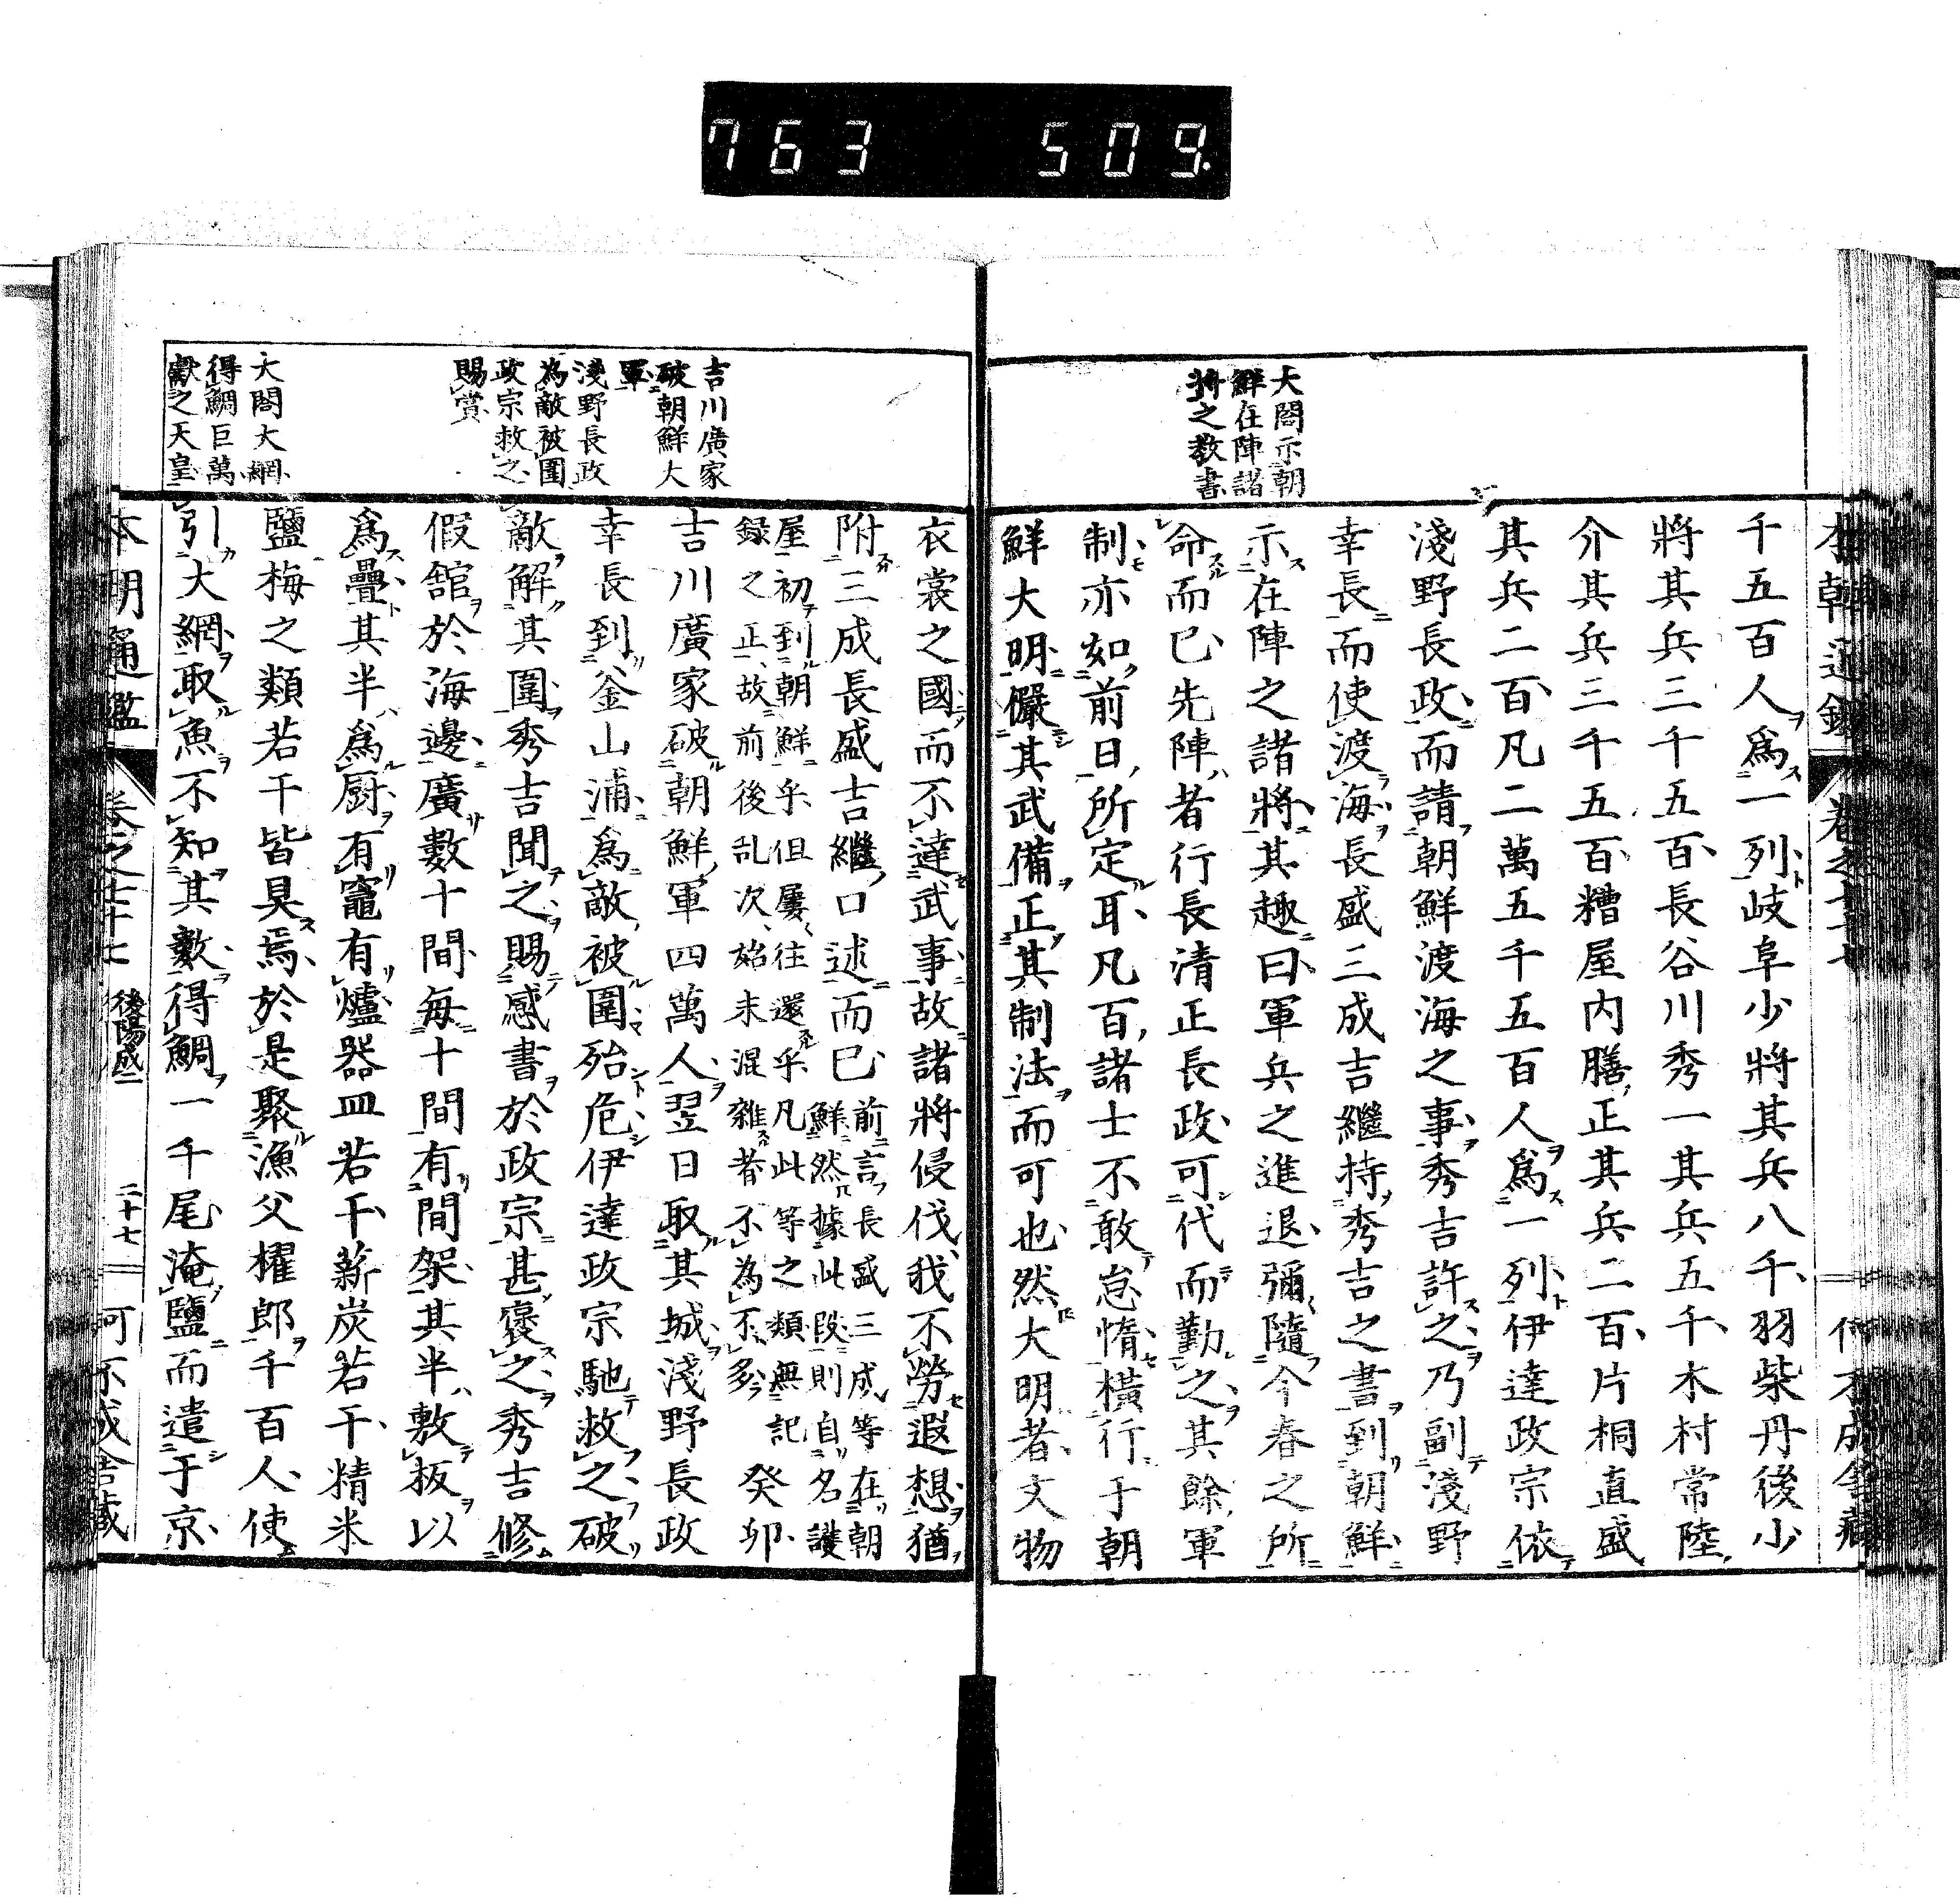 763 509.
大閤示朝
鮮在陣諸
將之教書
千五百人爲一列岐阜少將其兵八千羽柴丹後少
將其兵三千五百長谷川秀一其兵五千木村常陸
介其兵三千五百糟屋内膳正其兵二百片桐直盛
其兵二百凡二萬五千五百人爲一列伊達政宗依
淺野長政而請朝鮮渡海之事秀吉許之乃副淺野
幸長而使渡海長盛三成吉繼持秀吉之書到朝鮮
示在陣之諸將其趣曰軍兵之進退彌隨今春之所
命而已先陣者行長清正長政可代而勤之其餘軍
制亦如前日所定耳凡百諸士不敢怠惰橫行于朝
鮮大明儼其武備正其制法而可也然大明者文物
吉川廣家
破朝鮮大
軍
淺野長政
為敵被圍
政宗救之
賜賞
大閤大網
得鯛巨萬
獻之天皇
衣裳之國而不達武事故諸將侵伐我不勞遐想猶
附三成長盛吉繼口述而已前言長盛三成等在朝
鮮然據此段則自名護
屋初到朝鮮乎但屢往還乎凡此等之類無記
録之正故前後乱次始末混雜者不為不多 癸卯
吉川廣家破朝鮮軍四萬人翌日取其城淺野長政
幸長到釜山浦爲敵被圍殆危伊達政宗馳救之破
敵解其圍秀吉聞之賜感書於政宗甚褒之秀吉修
假舘於海邊廣數十間每十間有間架其半敷板以
爲疊其半爲厨有竈有爐器皿若干薪炭若干精米
鹽梅之類若干皆具焉於是聚漁父櫂郎千百人使
引大網取魚不知其數得鯛一千尾淹鹽而遣于京
本朝通鑑 卷之七十七 後陽成二 二十七 何不成舍藏